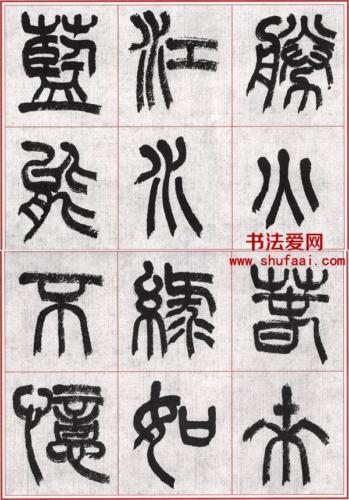 勝火春來
江水綠如
藍能不憶
书法爱网
www.shufaai.com